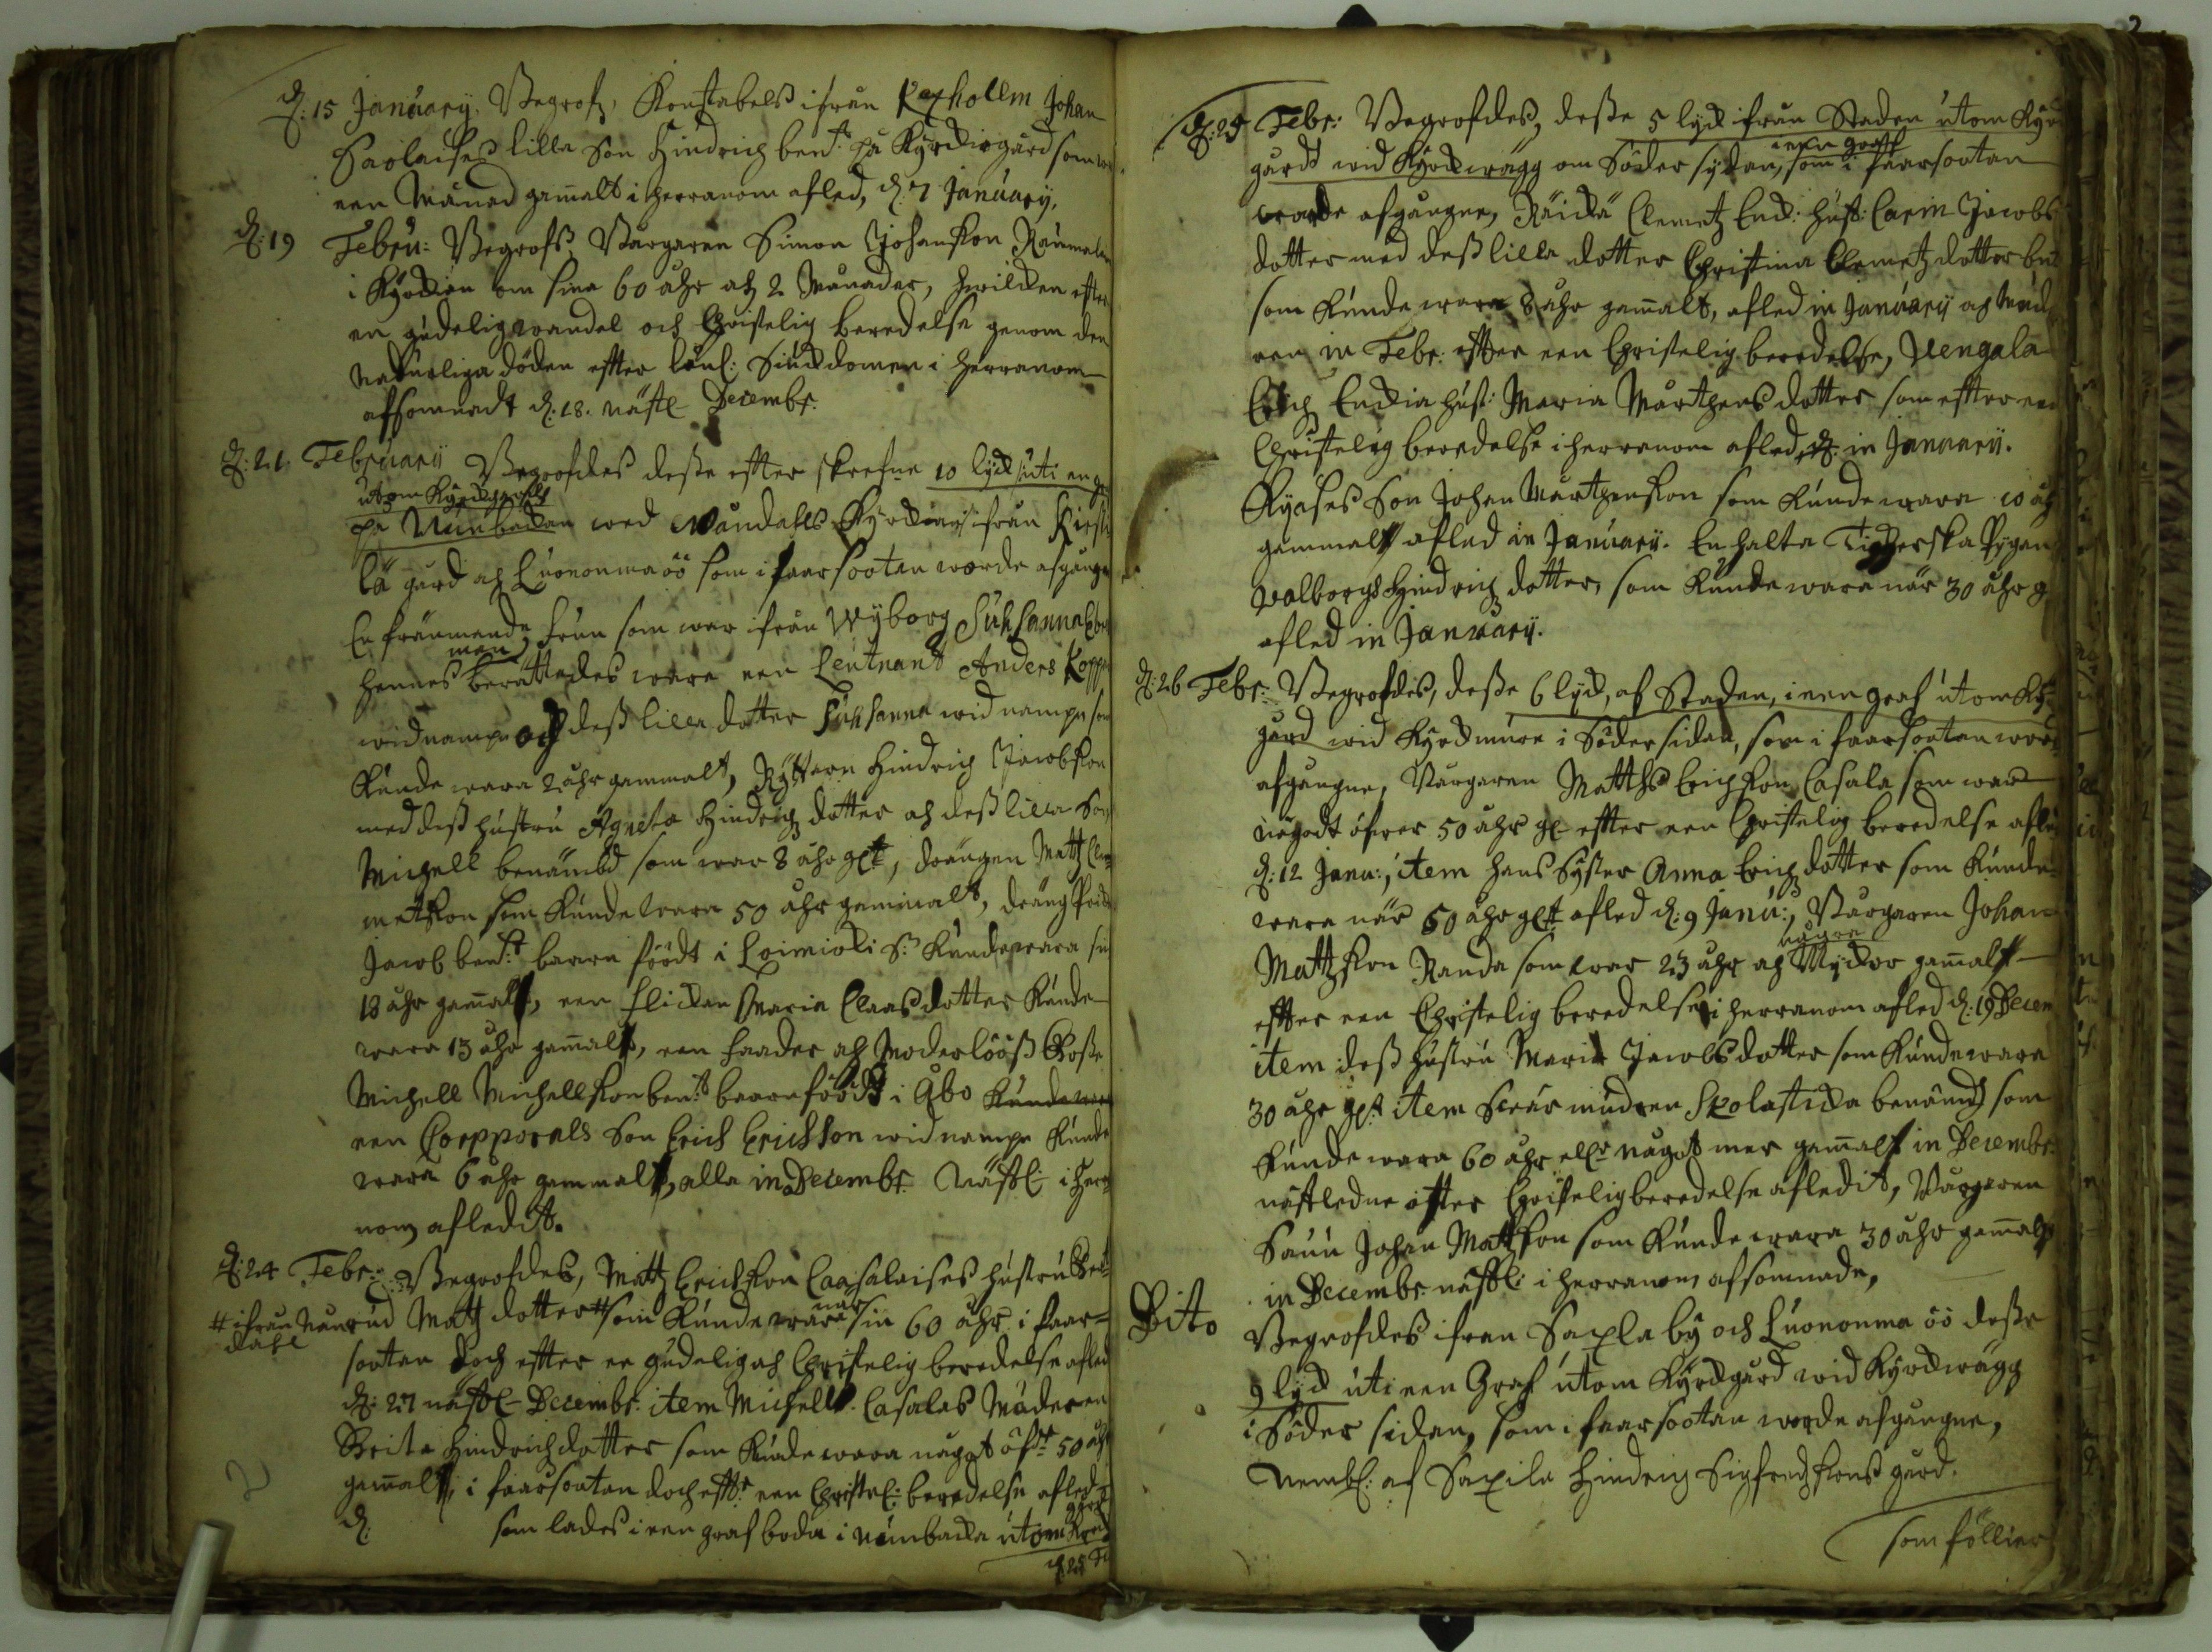 d. 15 January. Begrofz, Konstabels ifrån Kexhollm Johan
Paolaises lilla Son Hindrich ben:t på Kyrckiogård som
een Månad gamalt i herranom afled, d. 7 January.
d. 19 Febru: Begrofs Borgaren Simon Johansson Raumalin
i Kyrckian om sina 60 åhr och 2 Månader, hwilcken efter
en gudelig wandel och Christelig beredelse genom den
Naturliga döden effter långl: Siuckdomen i herranom
afsomnadt d. 18. näste Decembr.
d. 21 February Begrofdes desse effter skrefne 10 lyck uti en
utom Kyrckgård
på Nunbackan wed Nåndahls Kyrckian ifrån
lä gård och Luononmaöö som i faarsootan worde afgångne
En främmande frun som war ifrån Wyborg Suhsanna
man
hennes berättades wara een Leutnant Anders
widnampn och dess lilla dotter Suhsanna wid nampn som
kunde wara 2 åhr gammalt, Ryttaren Hindrich Jacobsson
med dess hustru Agneta Hindrichz dotter och dess lilla Son
Michell benämbd som war 8 åhr gl:t, drängen Matz Cle
metsson som kunde wara 50 åhr gammalt, dräng
Jacob ben:t baarn föödt i Loimiocki S:n kunde wara
18 åhr gamalt, een flickan Maria Claas dotter kunde
wara 13 åhr gamalt, een faader och Moderlööss Gosse
Michell Michellsson ben:t baarnföödt i Åbo kunde wara
een Corpporals Son Erich Erichsson wid nampn kunde
wara 6 åhr gammalt, alla in Decembr. Nästl: i herra
nom afledit.
d. 24 Febr: Begrofdes, Matz Erichsson Caasalaises hustru
# ifrån Nun Matz dotter # som kunde wara när sin 60 åhr i faar=
dahl
sootan doch effter en gudelig och Christelig beredelse afled
d: 27 nästl: Decembr: item Michells Casalas Måderen
Brita Hindrichdotter som kunde wara något öf:r 50 åhr
gamalt, i faarsootan doch efft:r een Christel: beredelse afled
d. som lades i een graf boda i Nunbacka utom
gård
d. 25
d. 25 Febr: Begrofdes, desse 5 lyck ifrån Staden utom Kyrck
i een graff
gårdt wid Kyrckwägg om Söder sydan, som i faarsootan
worde afgångne, Clemetz Enck: hust: Carin Jacobs
dotter med dess lilla dotter Christina Clemetz dotter ben
som kunde wara 8 åhr gamalt, afled in January och Mod
ren in Febr: effter een Christelig beredelse, Pengala
Erich Enckia hust: Maria Mårthens dotter som effter een
Christelig beredelse i herranom afled in January.
Kyäses Son Johan Mårthensson som kunde wara 10 åhr
gammalt afled in January. En halta Tiggerska Pygan
Walborg Hindrich dotter, som kunde wara när 30 åhr g
afled in January.
d: 26 Febr: Begrofdes, desse 6 lyck, af Staden, i een graf utom Ky
gård wid Kyrckmure i Södersidan, som i faarsootan worde
afgångne, Borgaren Matths Erichsson Casala som war
någodt öfwer 50 åhr gl: effter een Christelig beredelse afled
d: 12 Janu:, item hans Syster Anna Erich dotter som kunde
wara när 60 åhr gl:t afled d: 9 Janu:, Borgaren Johan
några
Matzsson Randa som war 23 åhr och Wyckor gamalt
effter een Christelig beredelse i herranom afled d: 19 Decem
item dess hustru Maria Jacobsdotter som kunde wara
30 åhr gl:t item Swärmodren Skolastica benämd som
kunde wara 60 åhr ell:r något mer gamalt in Decembr:
nästledne effter Christelig beredelse afledit, Borgaren
Sauu Johan Matzson som kunde wara 30 åhr gamalt
in Decembr. nästl: i herranom afsomnade,
Dito
Begrofdes ifrån Saxla by och Luononma öö desse
9 lyck uti een Graf utom Kyrckgård wid Kyrckwägg
i Söder sidan, som i faarsootan worde afgångne,
Nembl: af Saxila Hindrich Sigfredzssons gård.
som föllier
2